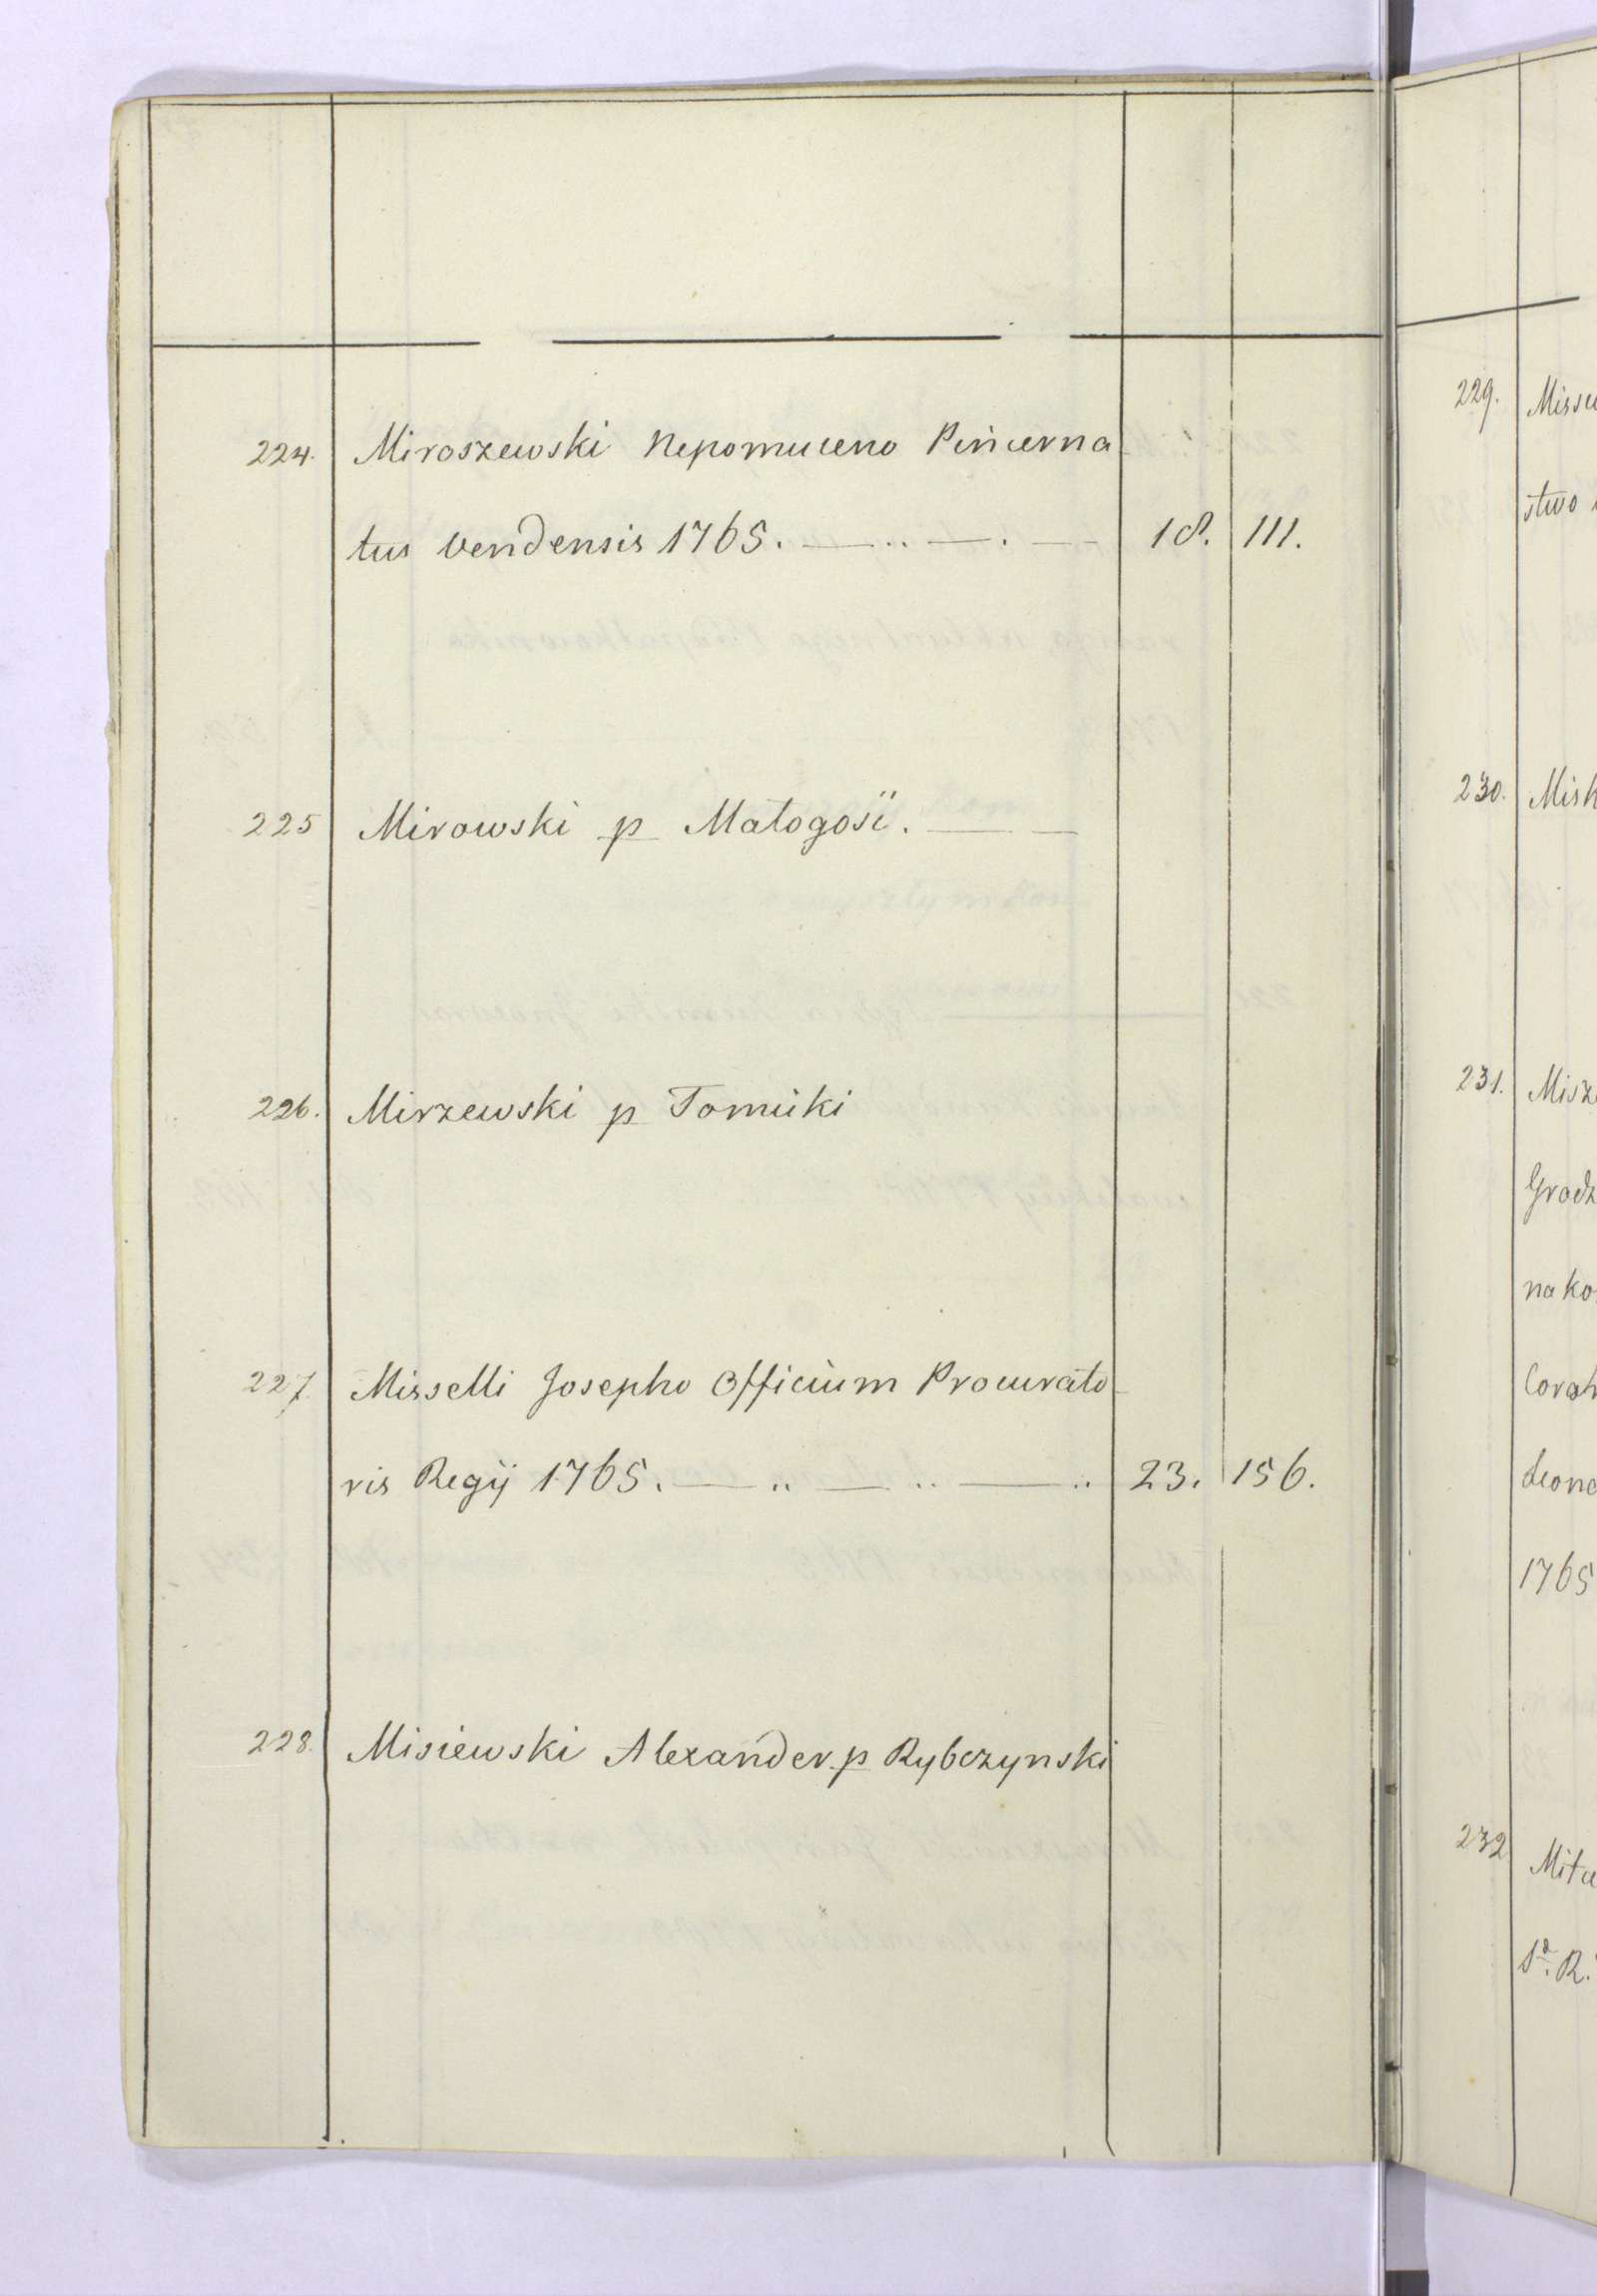 224. Miroszewski Nepomuceno Pincerna-
tus Vendensis 1765. 18. 111.
225 Mirowski p Małogosć.
226. Mirzewski p Tomicki
227. Misselli Josepho Officium Procurato-
ris Regij 1765. 23. 156.
228. Misiewski Alexander p Rybczynski
229.
stwo
230.
231.
Grodz
na ko
1765
232